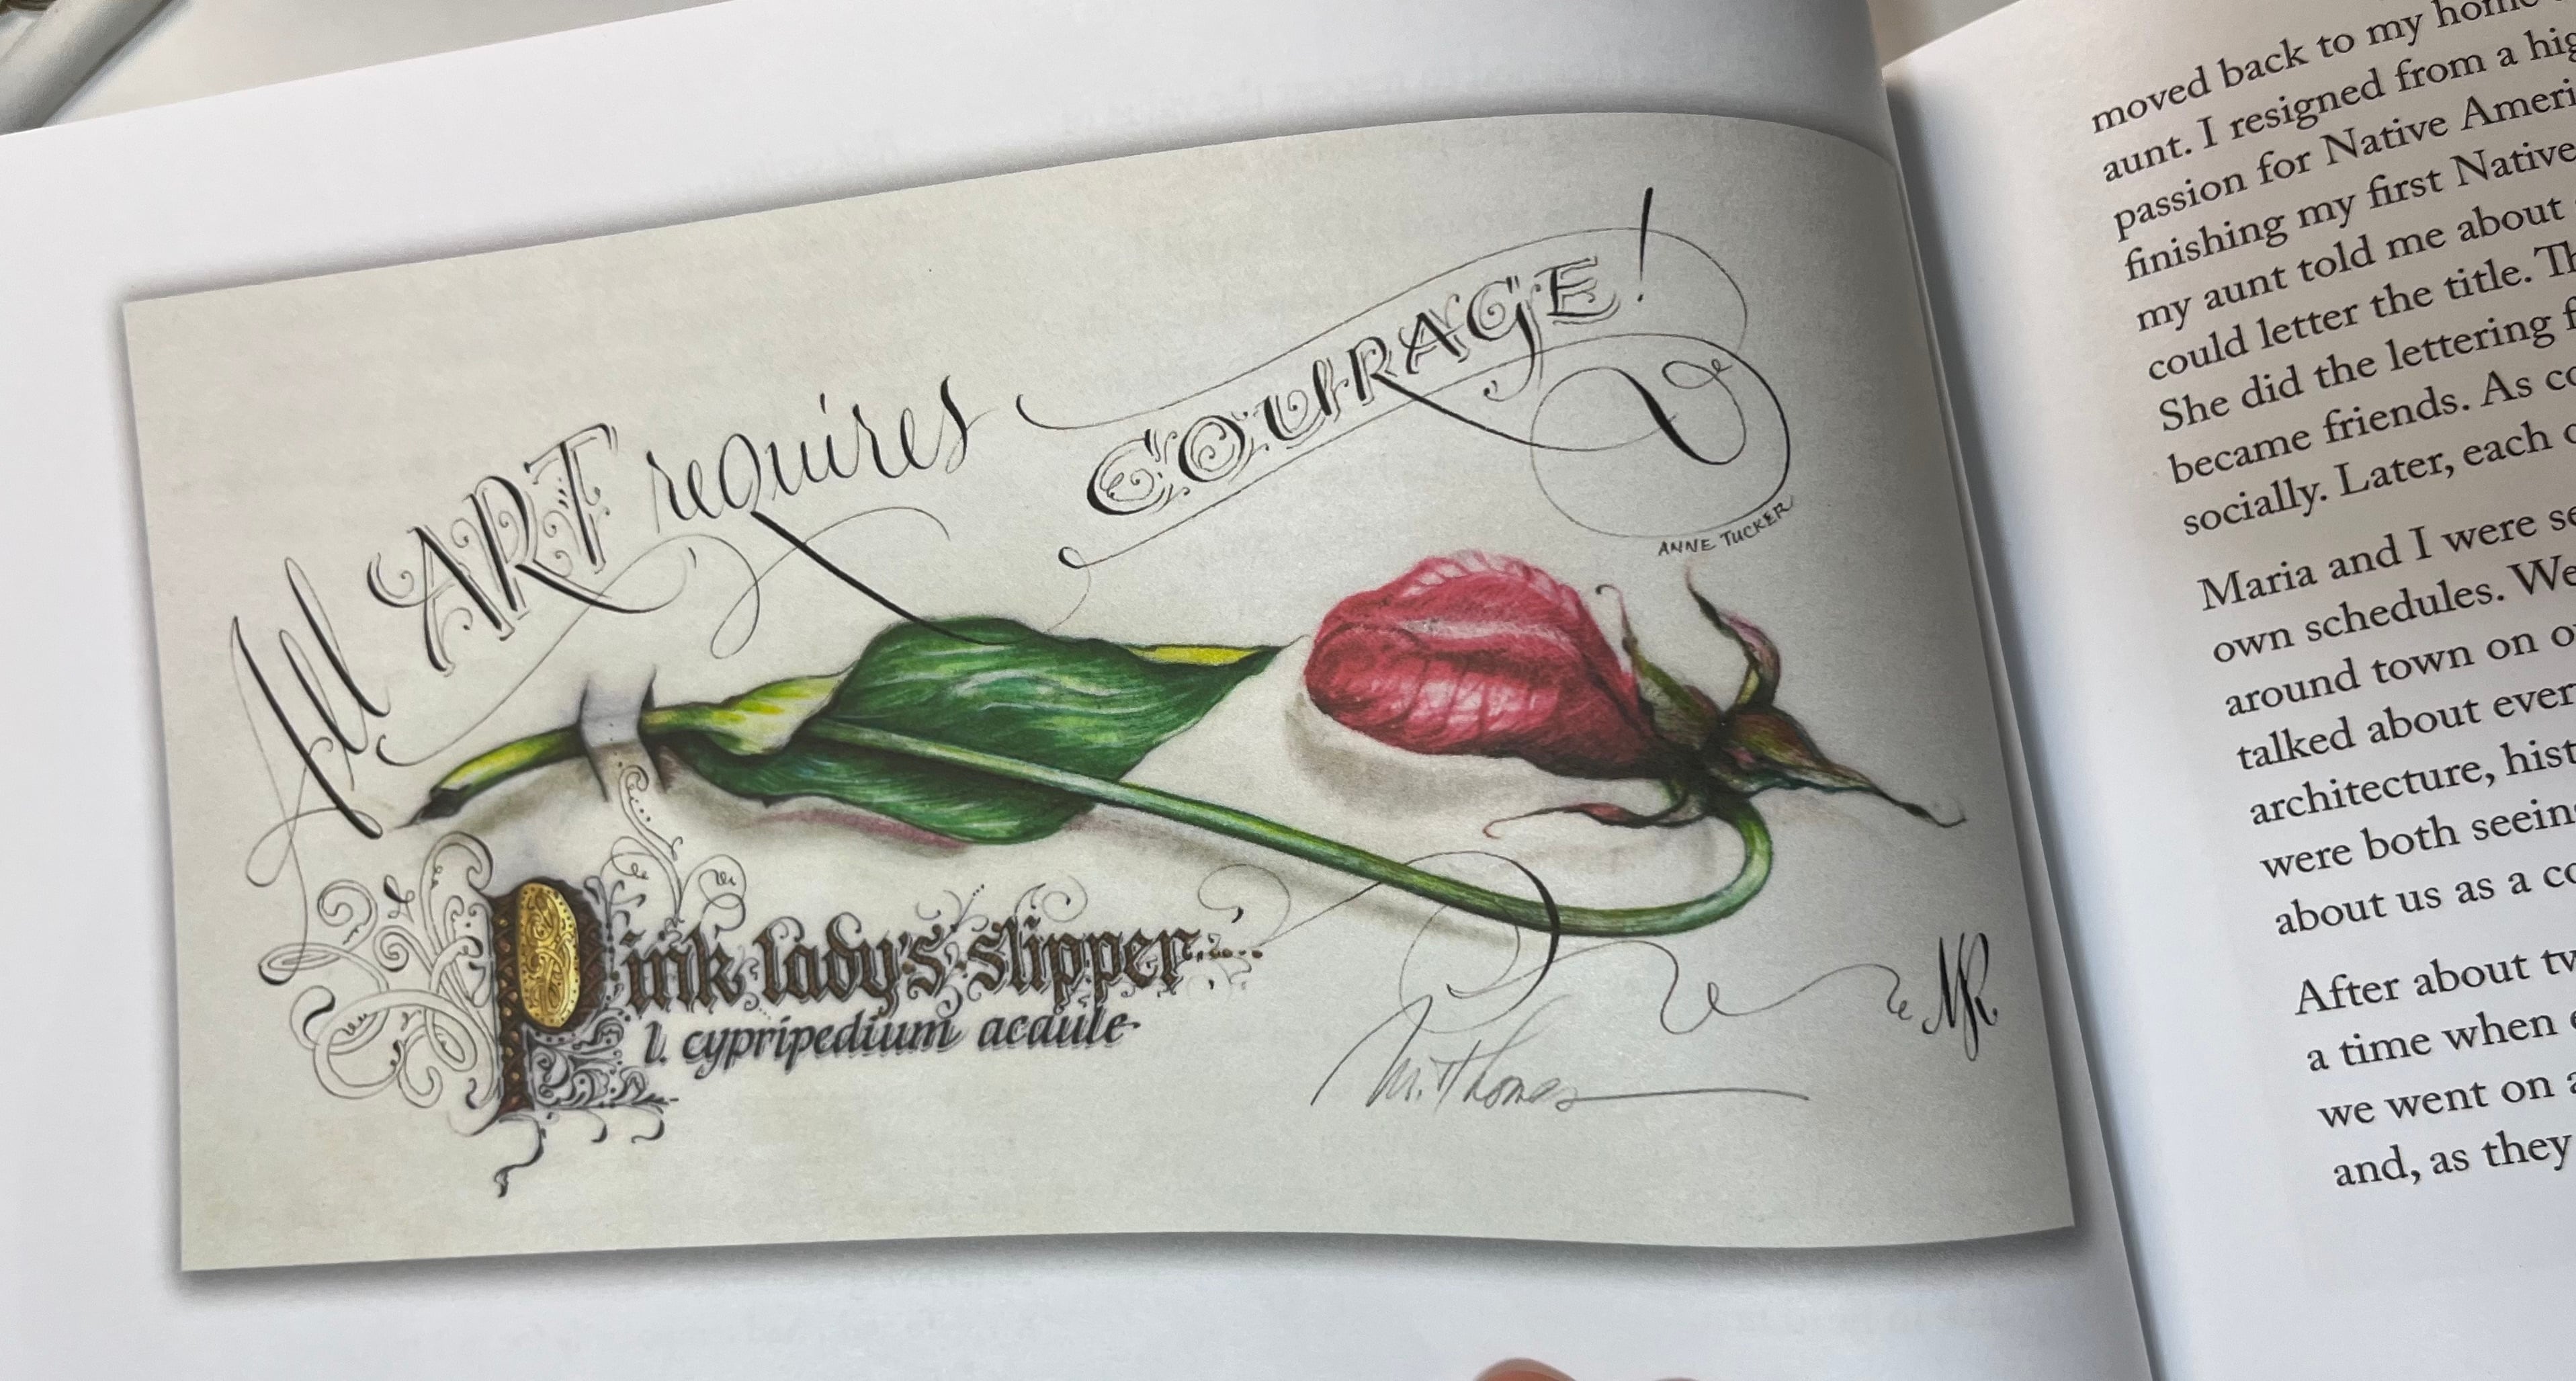 All ART requires COURAGE!
ANNE TUCKER
Pink lady's slipper
l. cypripedium acaule
M. Thomas
MR
moved back to my home
aunt. I resigned from a hig
passion for Native Ameri
finishing my first Native
my aunt told me about
could letter the title. Th
She did the lettering f
became friends. As co
socially. Later, each o
Maria and I were se
own schedules. We
around town on o
talked about ever
architecture, hist
were both seein
about us as a co
After about tw
a time when e
we went on a
and, as they